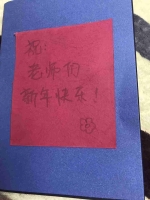 祝：
老师们
新年快乐！